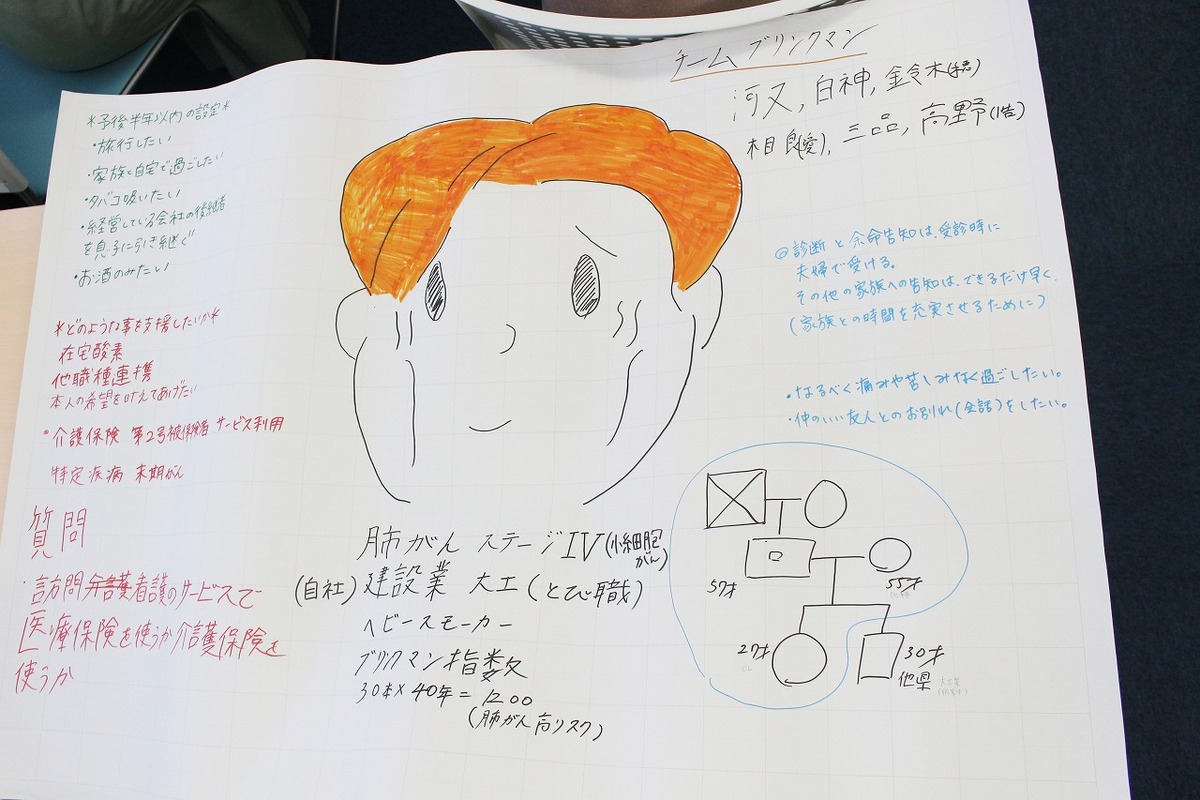 チーム ブリンクマン
河又, 白神, 鈴木(穂)
相良(愛), 三品, 高野(浩)
*予後半年以内の設定*
・旅行したい
・家族と自宅で過ごしたい
・タバコ吸いたい
・経営している会社の後継者
を息子に引き継ぐ
・お酒のみたい
*どのような事を支援したいか*
在宅酸素
他職種連携
本人の希望を叶えてあげたい
*介護保険 第2号被保険者 サービス利用
特定疾病 末期がん
質問
・訪問看護のサービスで
医療保険を使うか介護保険を
使うか
◎診断と余命告知は、受診時に
夫婦で受ける。
その他の家族への告知は、できるだけ早く。
(家族との時間を充実させるために)
・なるべく痛みや苦しみなく過ごしたい。
・仲のいい友人とのお別れ(会話)をしたい。
肺がん ステージIV(小細胞
がん)
(自社) 建設業 大工(とび職)
ヘビースモーカー
ブリンクマン指数
30本×40年=1200
(肺がん高リスク)
57才
55才
27才
30才
他県